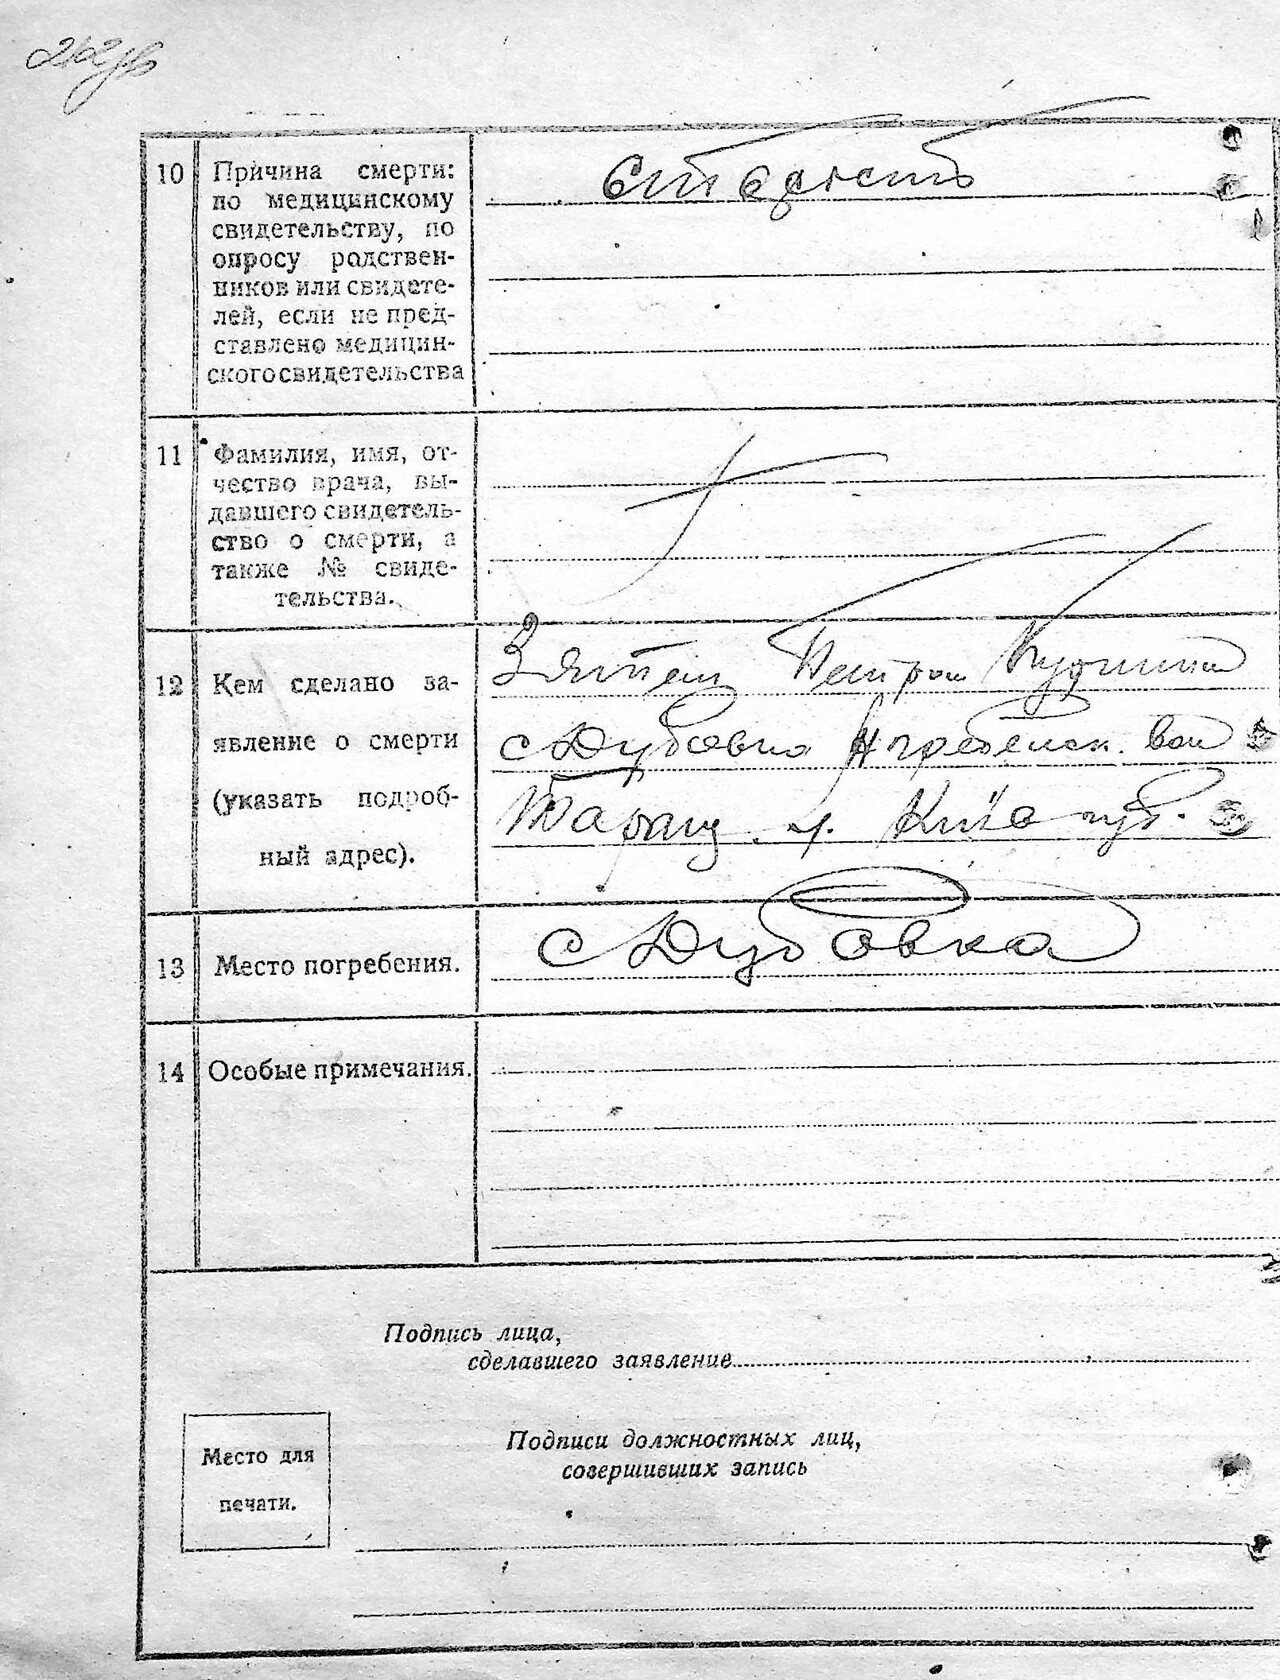 10 Причина смерти:
по медицинскому
свидетельству, по
опросу родствен-
ников или свидете-
лей, если не пред-
ставлено медицин-
ского свидетельства
старость
11 Фамилия, имя, от-
чество врача, вы-
давшего свидетель-
ство о смерти, а
также № свиде-
тельства.
12 Кем сделано за-
явление о смерти
(указать подроб-
ный адрес).
Зятем Петром
с Дубовка вол
Таращ. у. Київ губ.
13 Место погребения.
с Дубовка
14 Особые примечания.
Подпись лица,
сделавшего заявление
Место для
печати.
Подписи должностных лиц,
совершивших запись